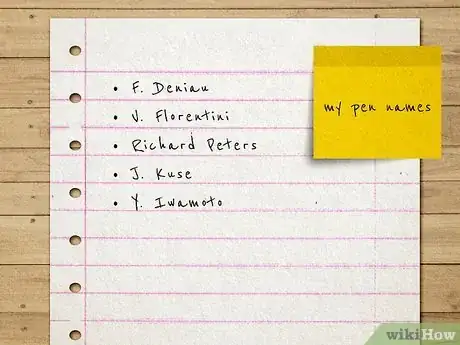 F. Deniau
V. Florentini
Richard Peters
J. Kuse
Y. Iwamoto
my pen names
wikiHow